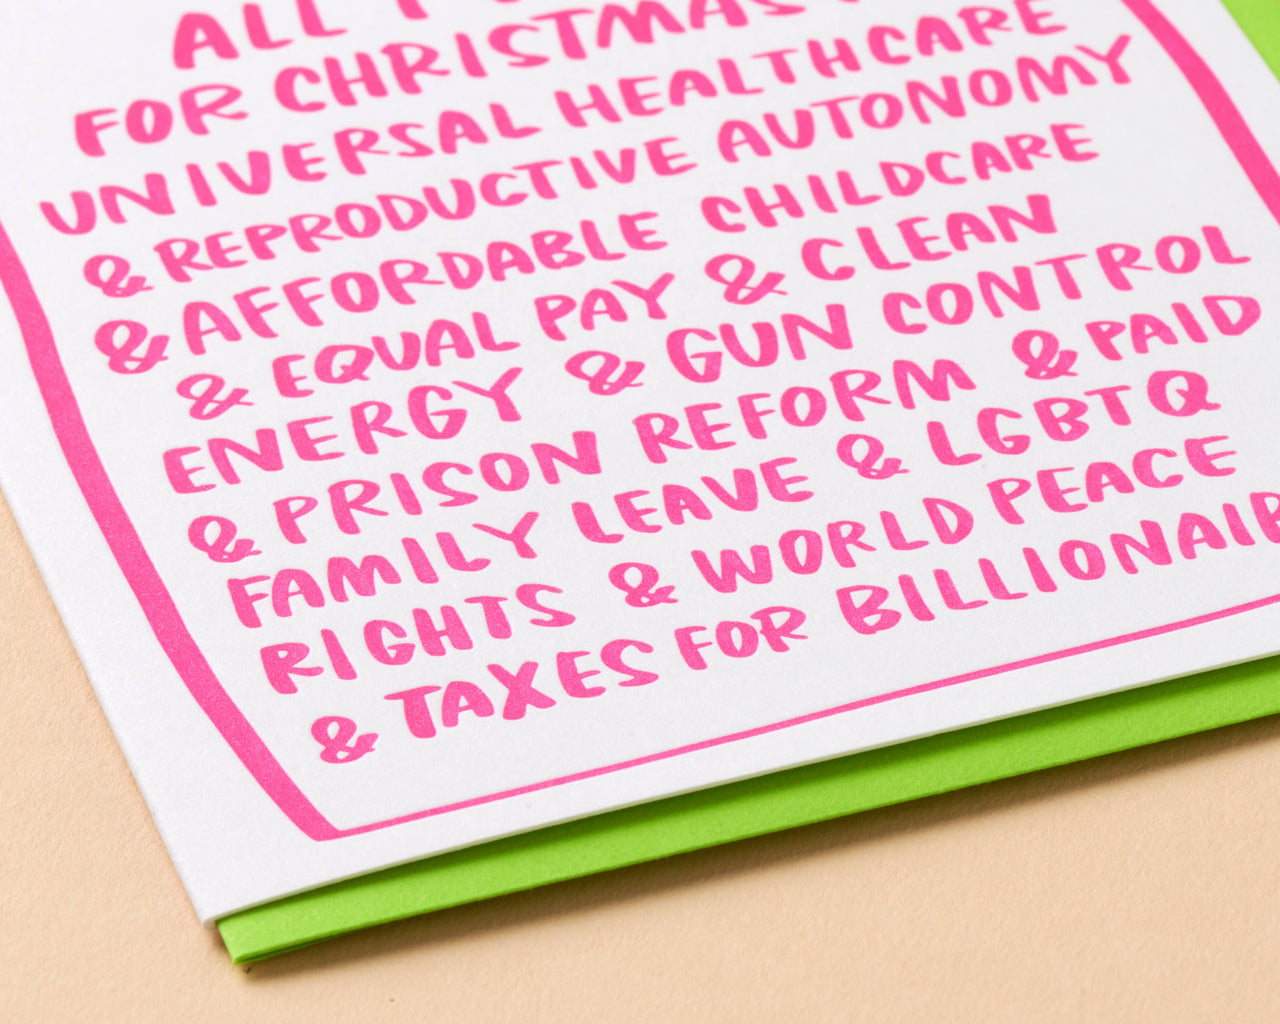 ALL I
FOR CHRISTMAS
UNIVERSAL HEALTHCARE
& REPRODUCTIVE AUTONOMY
& AFFORDABLE CHILDCARE
& EQUAL PAY & CLEAN
ENERGY & GUN CONTROL
& PRISON REFORM & PAID
FAMILY LEAVE & LGBTQ
RIGHTS & WORLD PEACE
& TAXES FOR BILLIONAIR